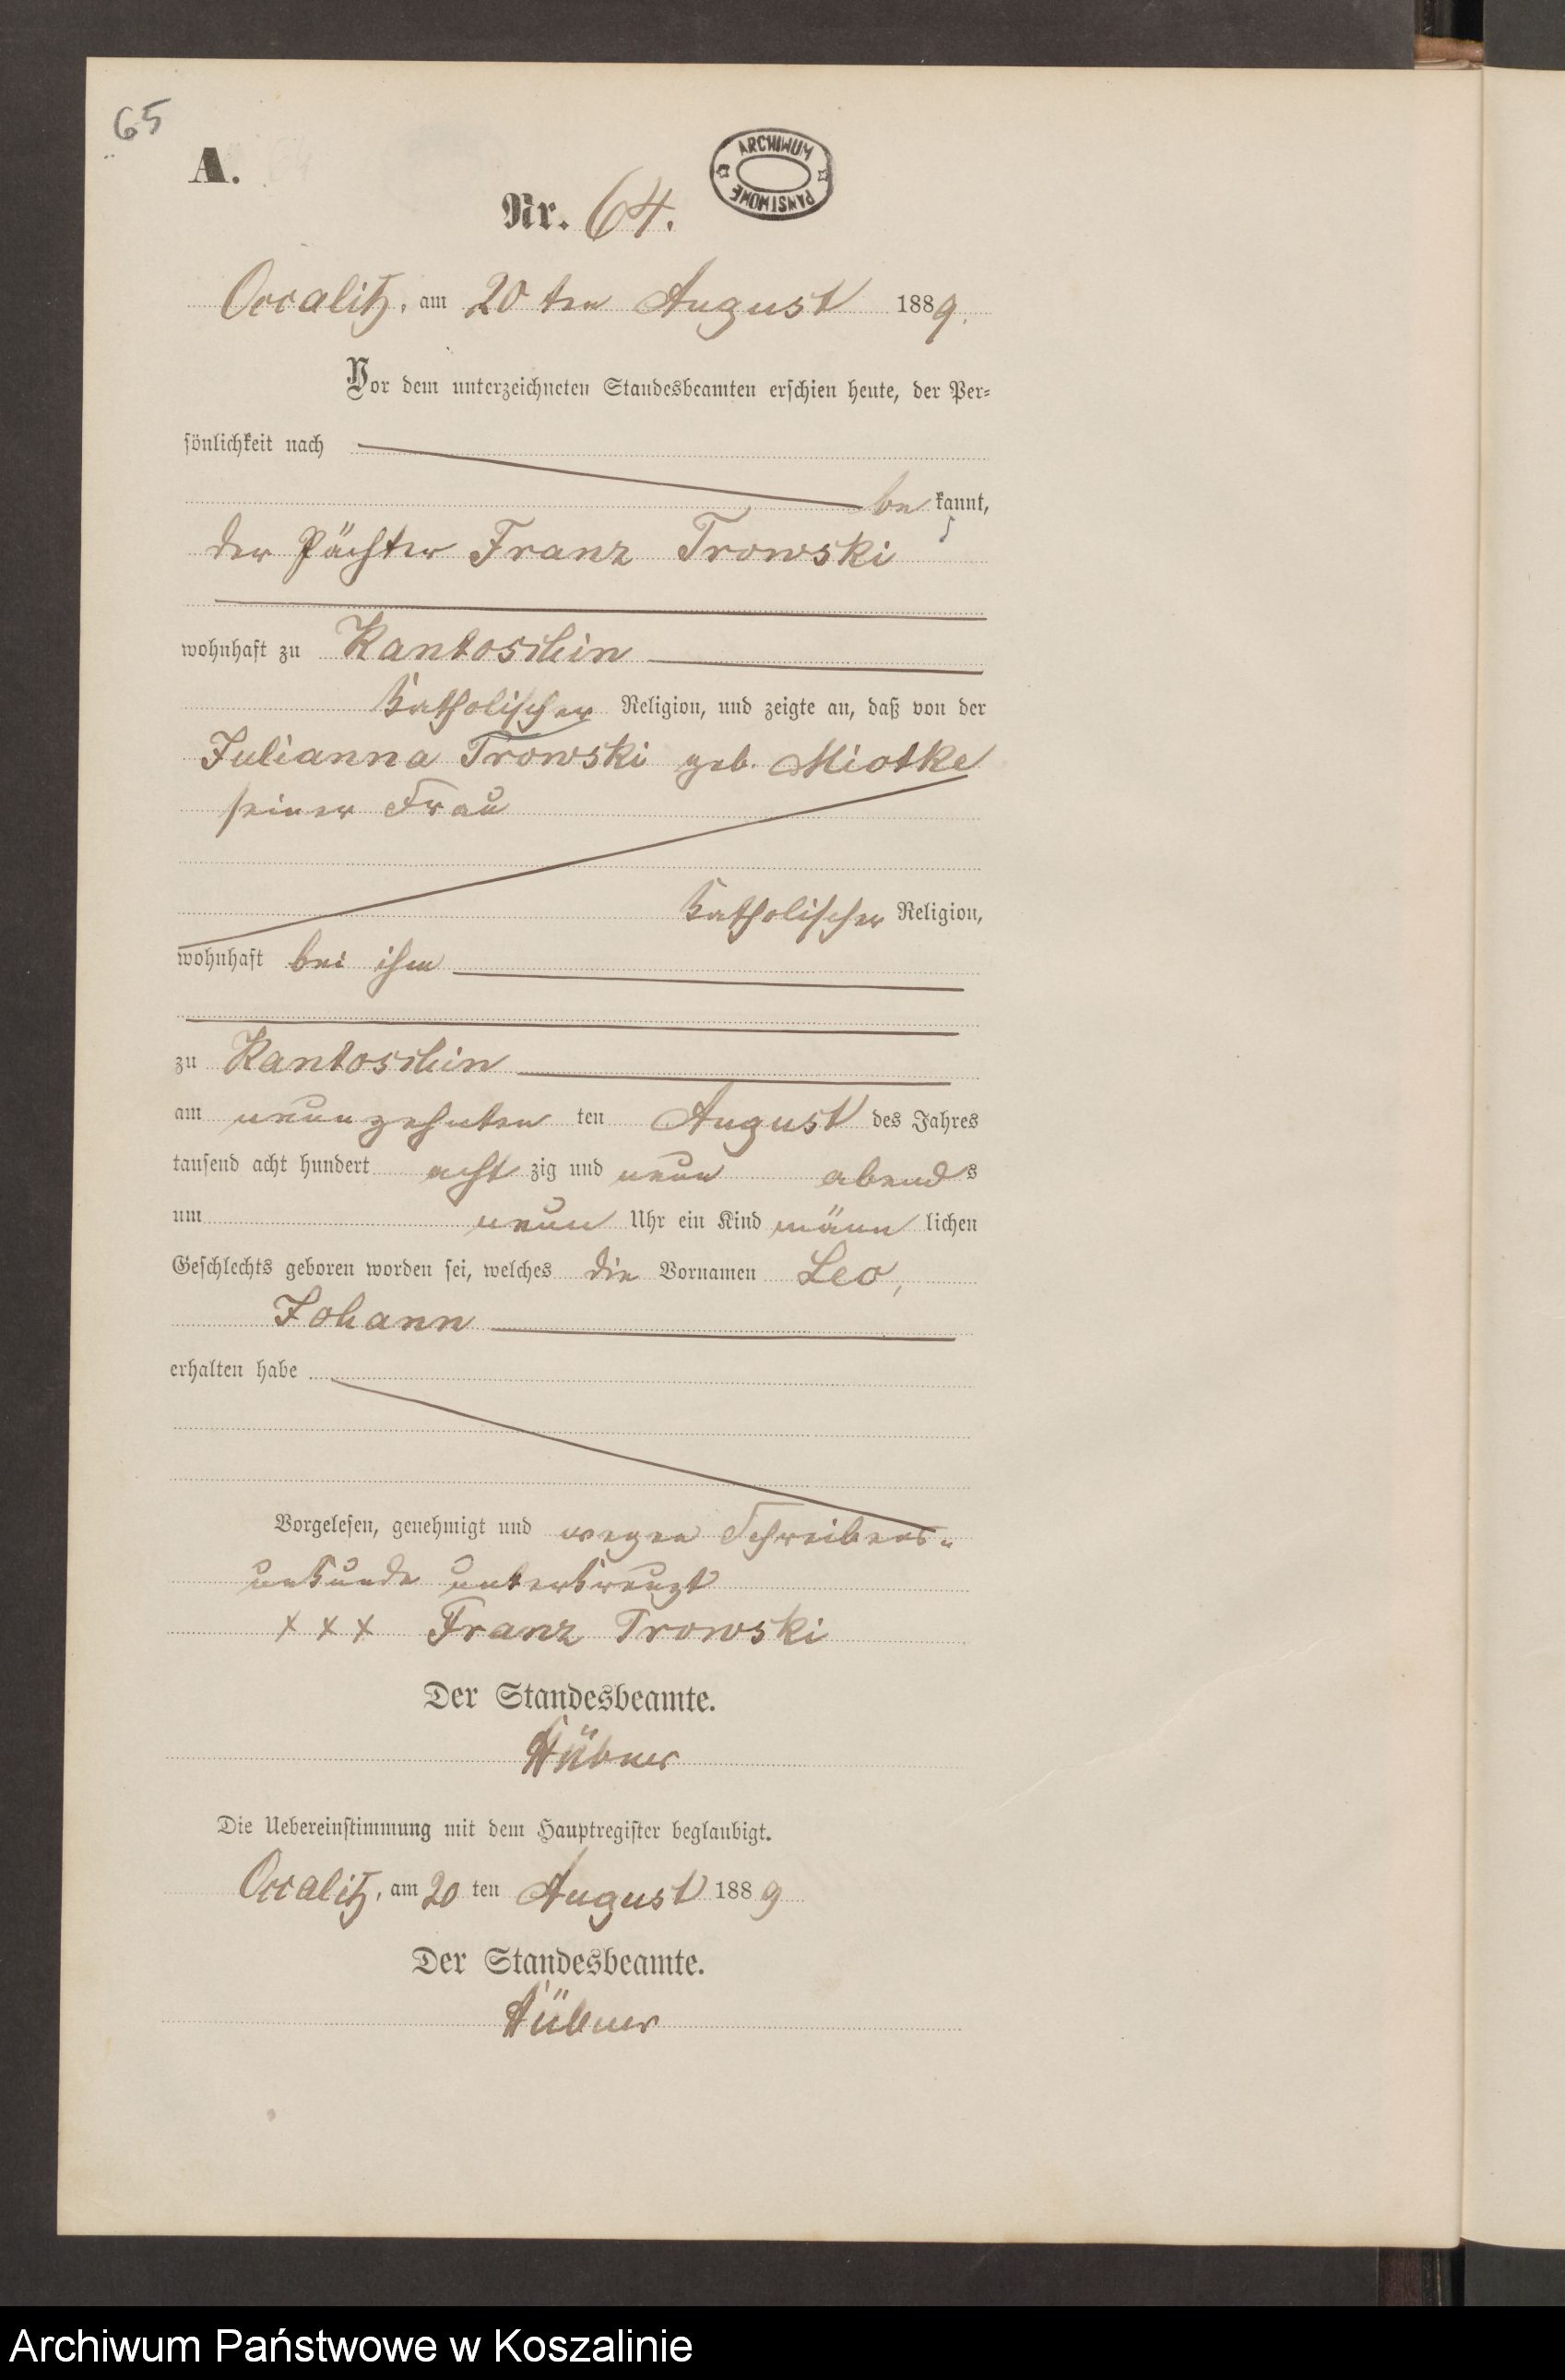 65
A.
ARCHIWUM PAŃSTWOWE
Nr. 64.
Occalitz, am 20 ten August 1889.
Vor dem unterzeichneten Standesbeamten erschien heute, der Per-
sönlichkeit nach
be kannt,
der Pächter Franz Trowski
wohnhaft zu Kantoschin
katholischer Religion, und zeigte an, daß von der
Julianna Trowski geb. Miotke
seiner Frau
katholischer Religion,
wohnhaft bei ihm
zu Kantoschin
am neunzehnten ten August des Jahres
tausend acht hundert acht zig und neun abend s
um neun Uhr ein Kind männ lichen
Geschlechts geboren worden sei, welches die Vornamen Leo,
Johann
erhalten habe
Vorgelesen, genehmigt und wegen Schreibens-
unkunde unterkreuzt
x x x Franz Trowski
Der Standesbeamte.
Hübner
Die Uebereinstimmung mit dem Hauptregister beglaubigt.
Occalitz, am 20 ten August 1889
Der Standesbeamte.
Hübner
Archiwum Państwowe w Koszalinie